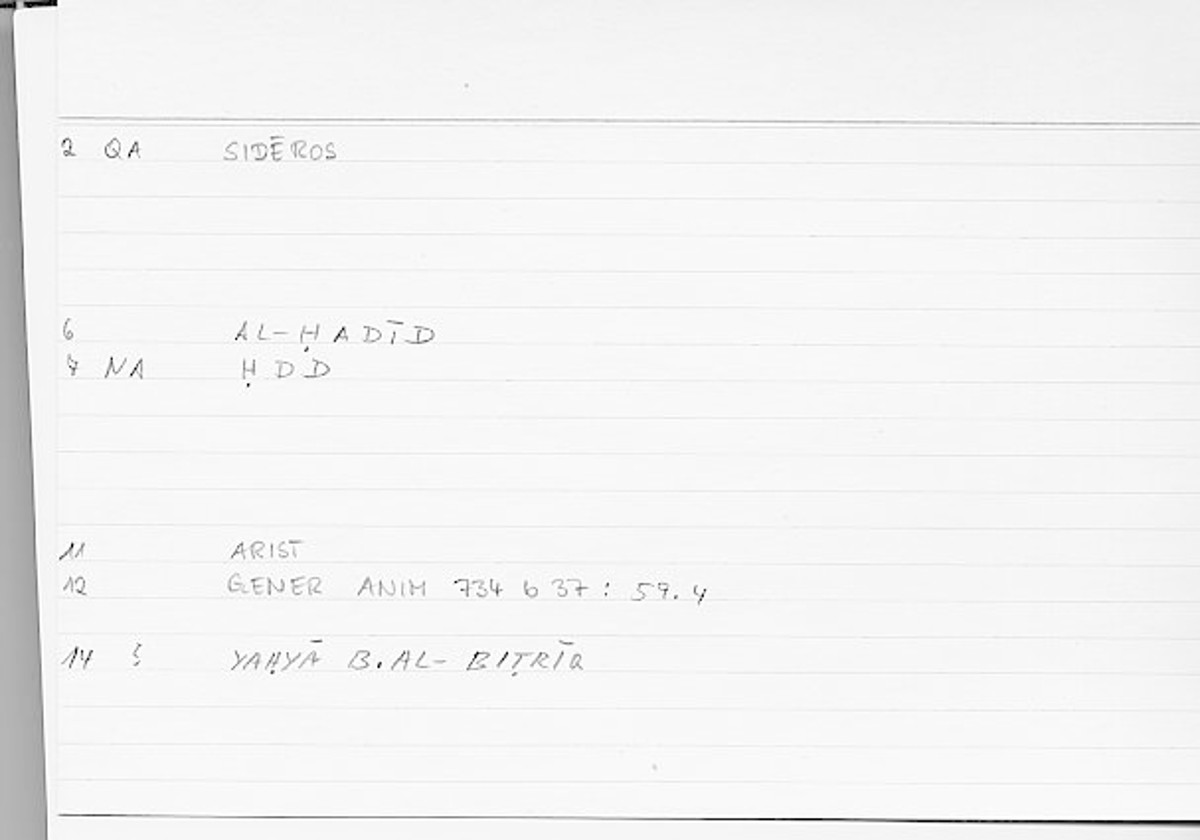 2 QA SIDĒROS
6 AL-ḤADĪD
7 NA ḤDD
11 ARIST
12 GENER ANIM 734 b 37 : 59.4
14 YAḤYĀ B.AL-BIṬRĪQ